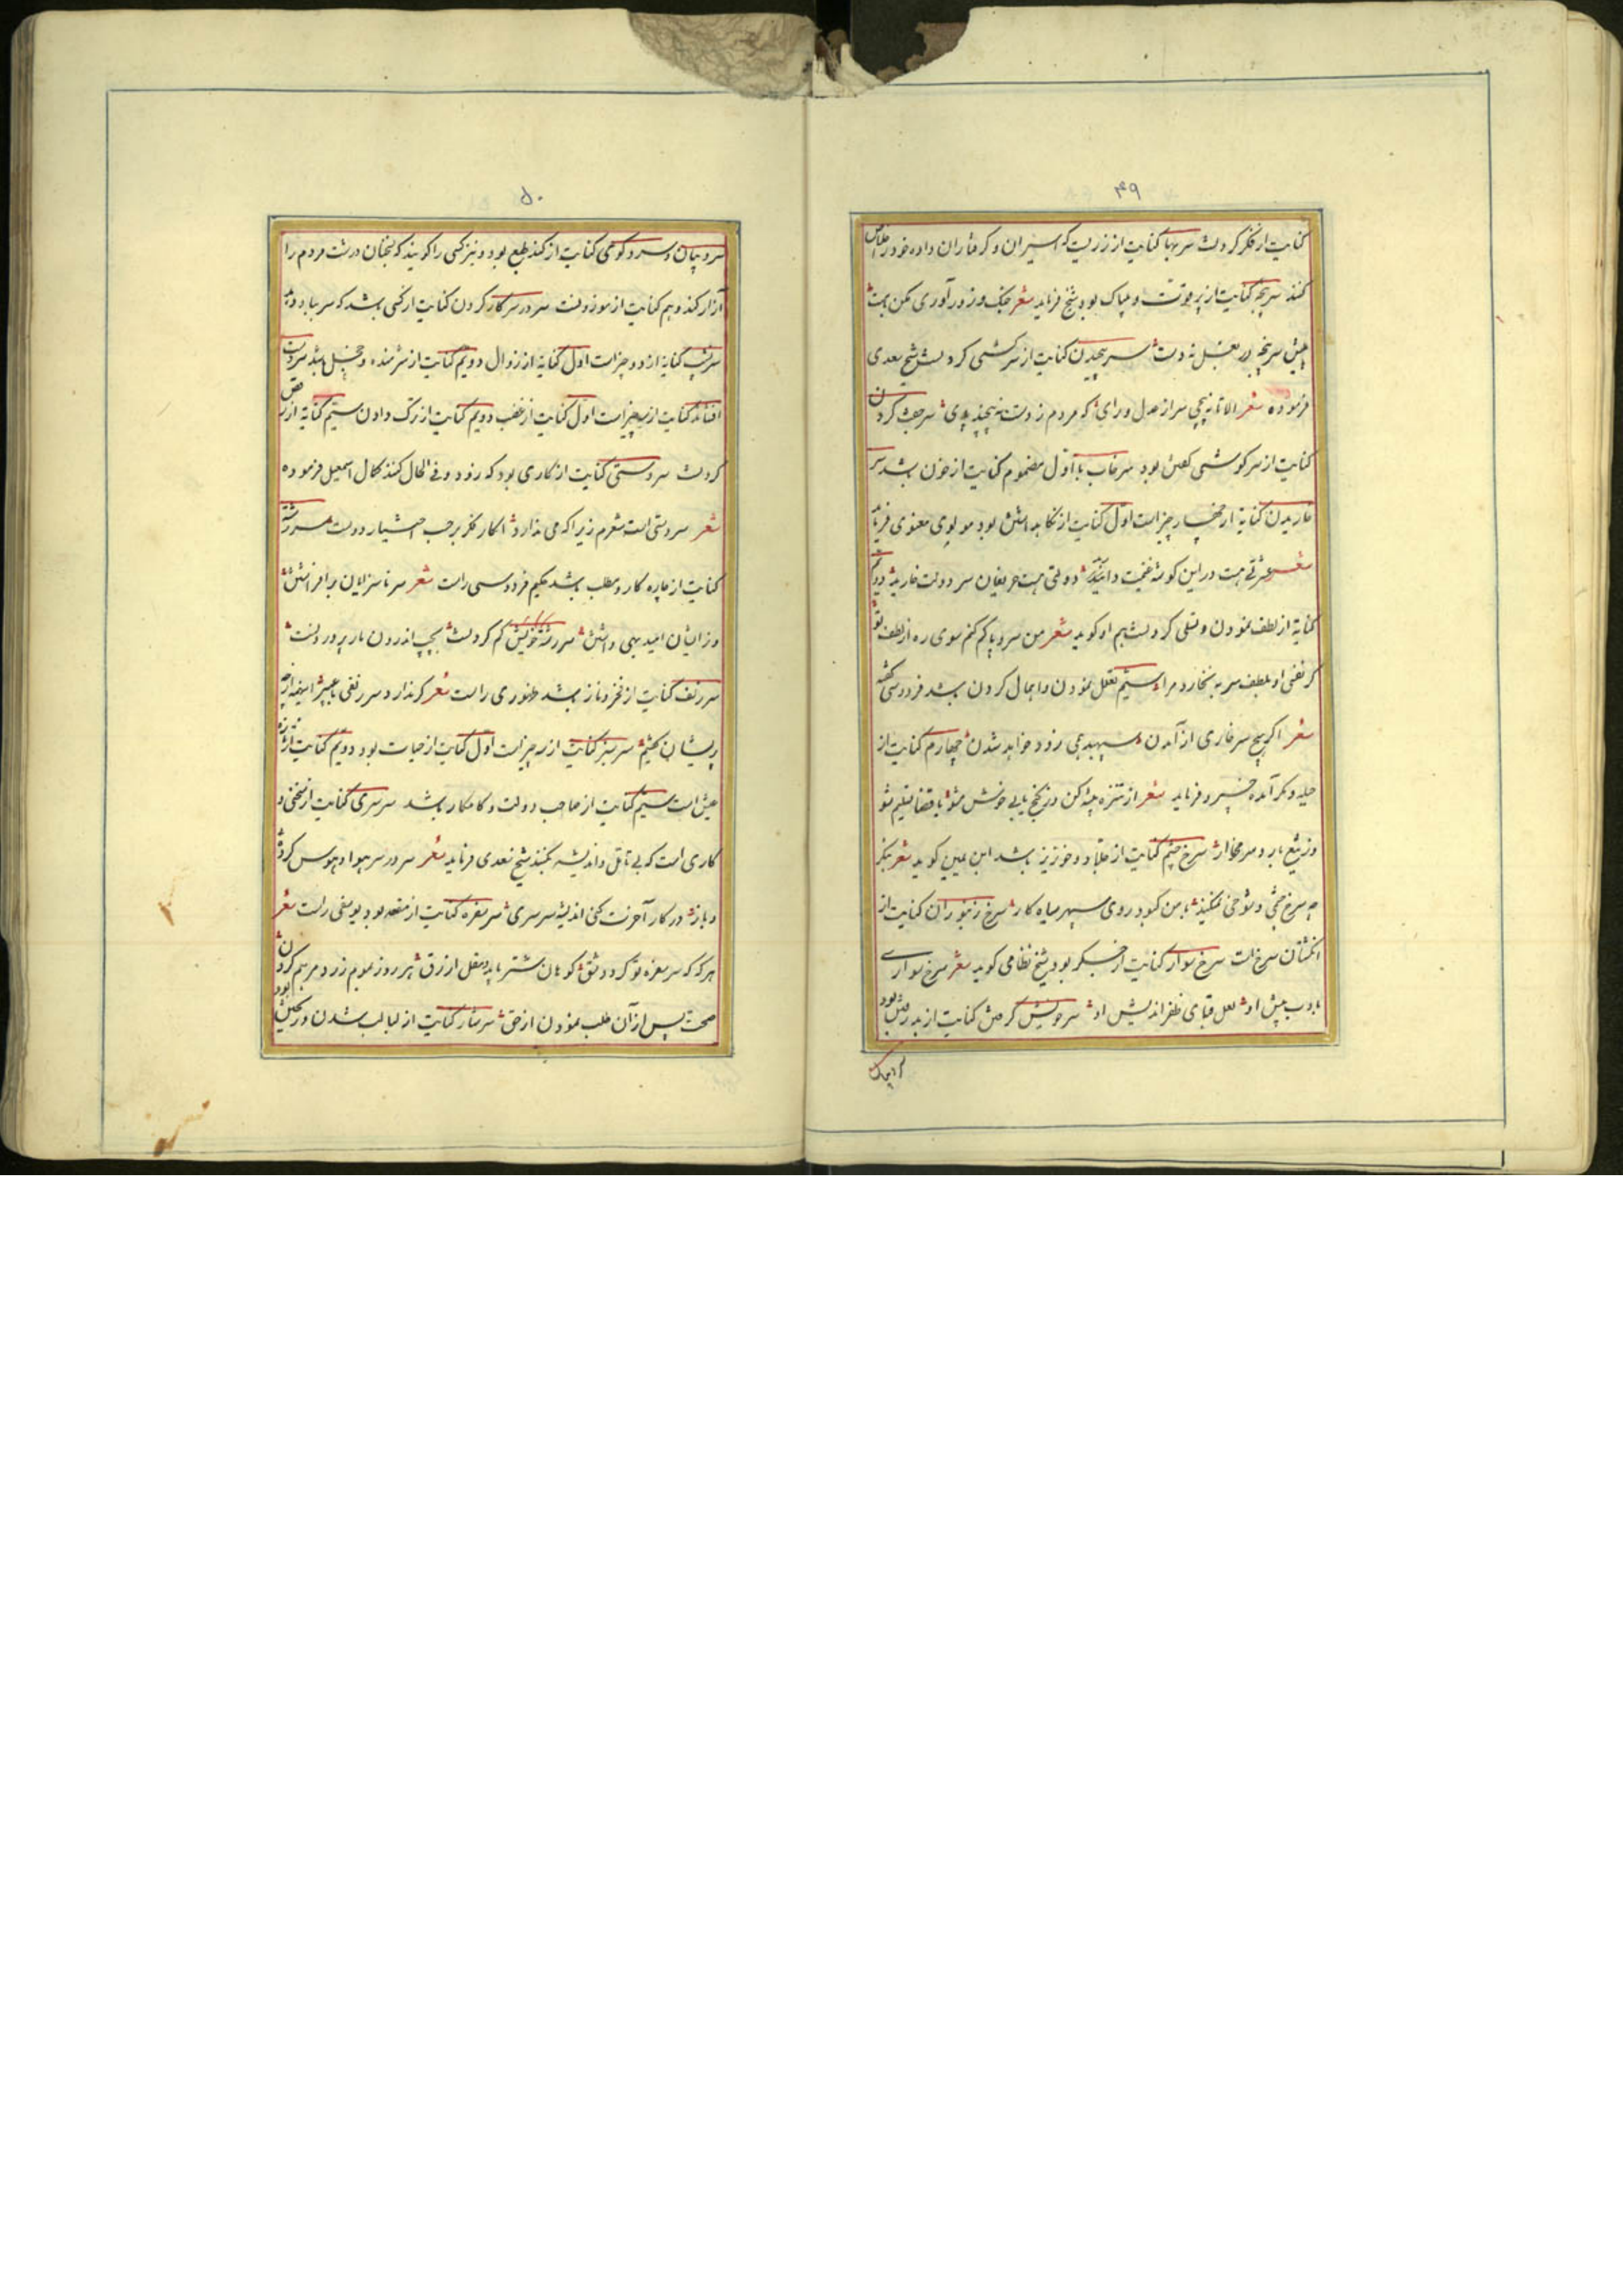 ۴۹
کنایت از فکر کردنست سر بها کنایت از زریست که اسیران و گرفتاران داده خود را خلاص
کنند سرپنجه کنایت از پر قوت و بیباک بود شیخ فرماید شعر جنگ و زورآوری مکن با مست
پیش سرپنجه در بغل نه دست سر پیچیدن کنایت از سرکشی کردنست شیخ سعدی
فرموده شعر الا تا نپیچی سر از عدل و رای که مردم ز دستت نپیچند پای سر جفت کردن
کنایت از سرگوشی گفتن بود سرخاب با اول مضموم کنایت از خون باشد سر
خاریدن کنایة از چهار چیز است اول کنایت از نگاه داشتن بود مولوی معنوی فرماید
شعر عشرتی هست در این گوشه غنیمت دانید دولتی هست حریفان سر دولت خارید دویم
کنایة از لطف نمودن و تسلی کردنست هم او گوید شعر من سر و پا گم کنم سوی ره از لطف تو
گر نفسی او بلطف سر بنخارد مرا سیم تعلل نمودن و اهمال کردن باشد فردوسی گفته
شعر اگر هیچ سر خاری از آمدن سپهبد همی زود خواهد شدن چهارم کنایت از
حیله و مکر آمده خسرو فرماید شعر از تنزه پیشه کن وز کنج یابی خوش مشو با قضا تسلیم شو
وز تیغ بار و سر مخار سرخ چشم کنایت از جلاد و خونریز باشد ابن یمین گوید شعر بنگر
چه سرخ چشمی و شوخی نمیکند با من کبود روی سپهر سیاه کار سرخ زنبوران کنایت از
انگشتان سرخ است سرخ سوار کنایت از خسگر بود شیخ نظامی گوید شعر سرخ سواری
بادب پیش او لعل قبای ظفر اندیش او سر خویش گرفتن کنایت از بدر رفتن بود
۵۰
سرد بیان و سردگوی کنایت از کند طبع بود و نیز کسی را گویند که بسخنان درشت مردم را
آزار کند و هم کنایت از موزونست سر در سر کار کردن کنایت از کسی باشد که سر بباد دهد
سرشب کنایة از دو چیز است اول کنایة از زوال دویم کنایت از شرمنده و خجل باشد سردست
افشاند کنایت از سه چیز است اول کنایت از غضب دویم کنایت از ترک دادن سیم کنایة از رقص
کردنست سردستی کنایت از کاری بود که زود و فی الحال کنند کمال اسمعیل فرموده
شعر سردستی است شعرم زیرا که می ندارد انکار فکر بر حسب اختیار دوست سررشته
کنایت از چاره کار و مطلب باشد حکیم فردوسی راست شعر سر ناسزایان برافراشتن
وز ایشان امید بهی داشتن سررشته خویش گم کردنست بجیب اندرون مار پروردنست
سر زلف کنایت از فخر و ناز باشد ظهوری راست شعر گر ندارد سر زلفی با عبیر
پریشان نکنیم سرسبز کنایت از سه چیز است اول کنایت از حیات بود دویم کنایت از تازه
عیش است سیم کنایت از صاحب دولت و کامکار باشد سرسری کنایت از سخنی و
کاری است که بی تامل و اندیشه بکنند شیخ سعدی فرماید شعر سر در سر هوا و هوس کردی
و باز در کار آخرت کنی اندیشه سرسری سر سفره کنایت از مقعد بود یوسفی راست شعر
هر که که سر سفره تو گردد شق کوهان شتر باید و مقل ازرق هر روز بموم زرد مرهم کردن
صحت پس از آن طلب نمودن از حق سرشار کنایت از لبالب شدن و ریختن بود